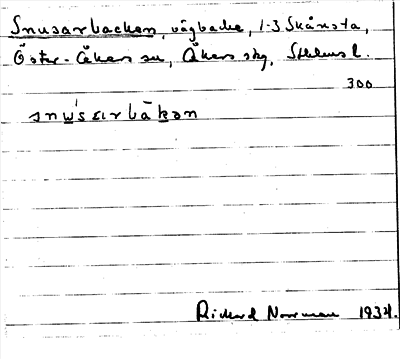 Snusarbacken, vägbacke, 1-3 Skånsta,
Öster-Åkers sn, Åkers skg, Sthlms l.
300
snu̲'sarbàkən
Rickard Norrman 1934.